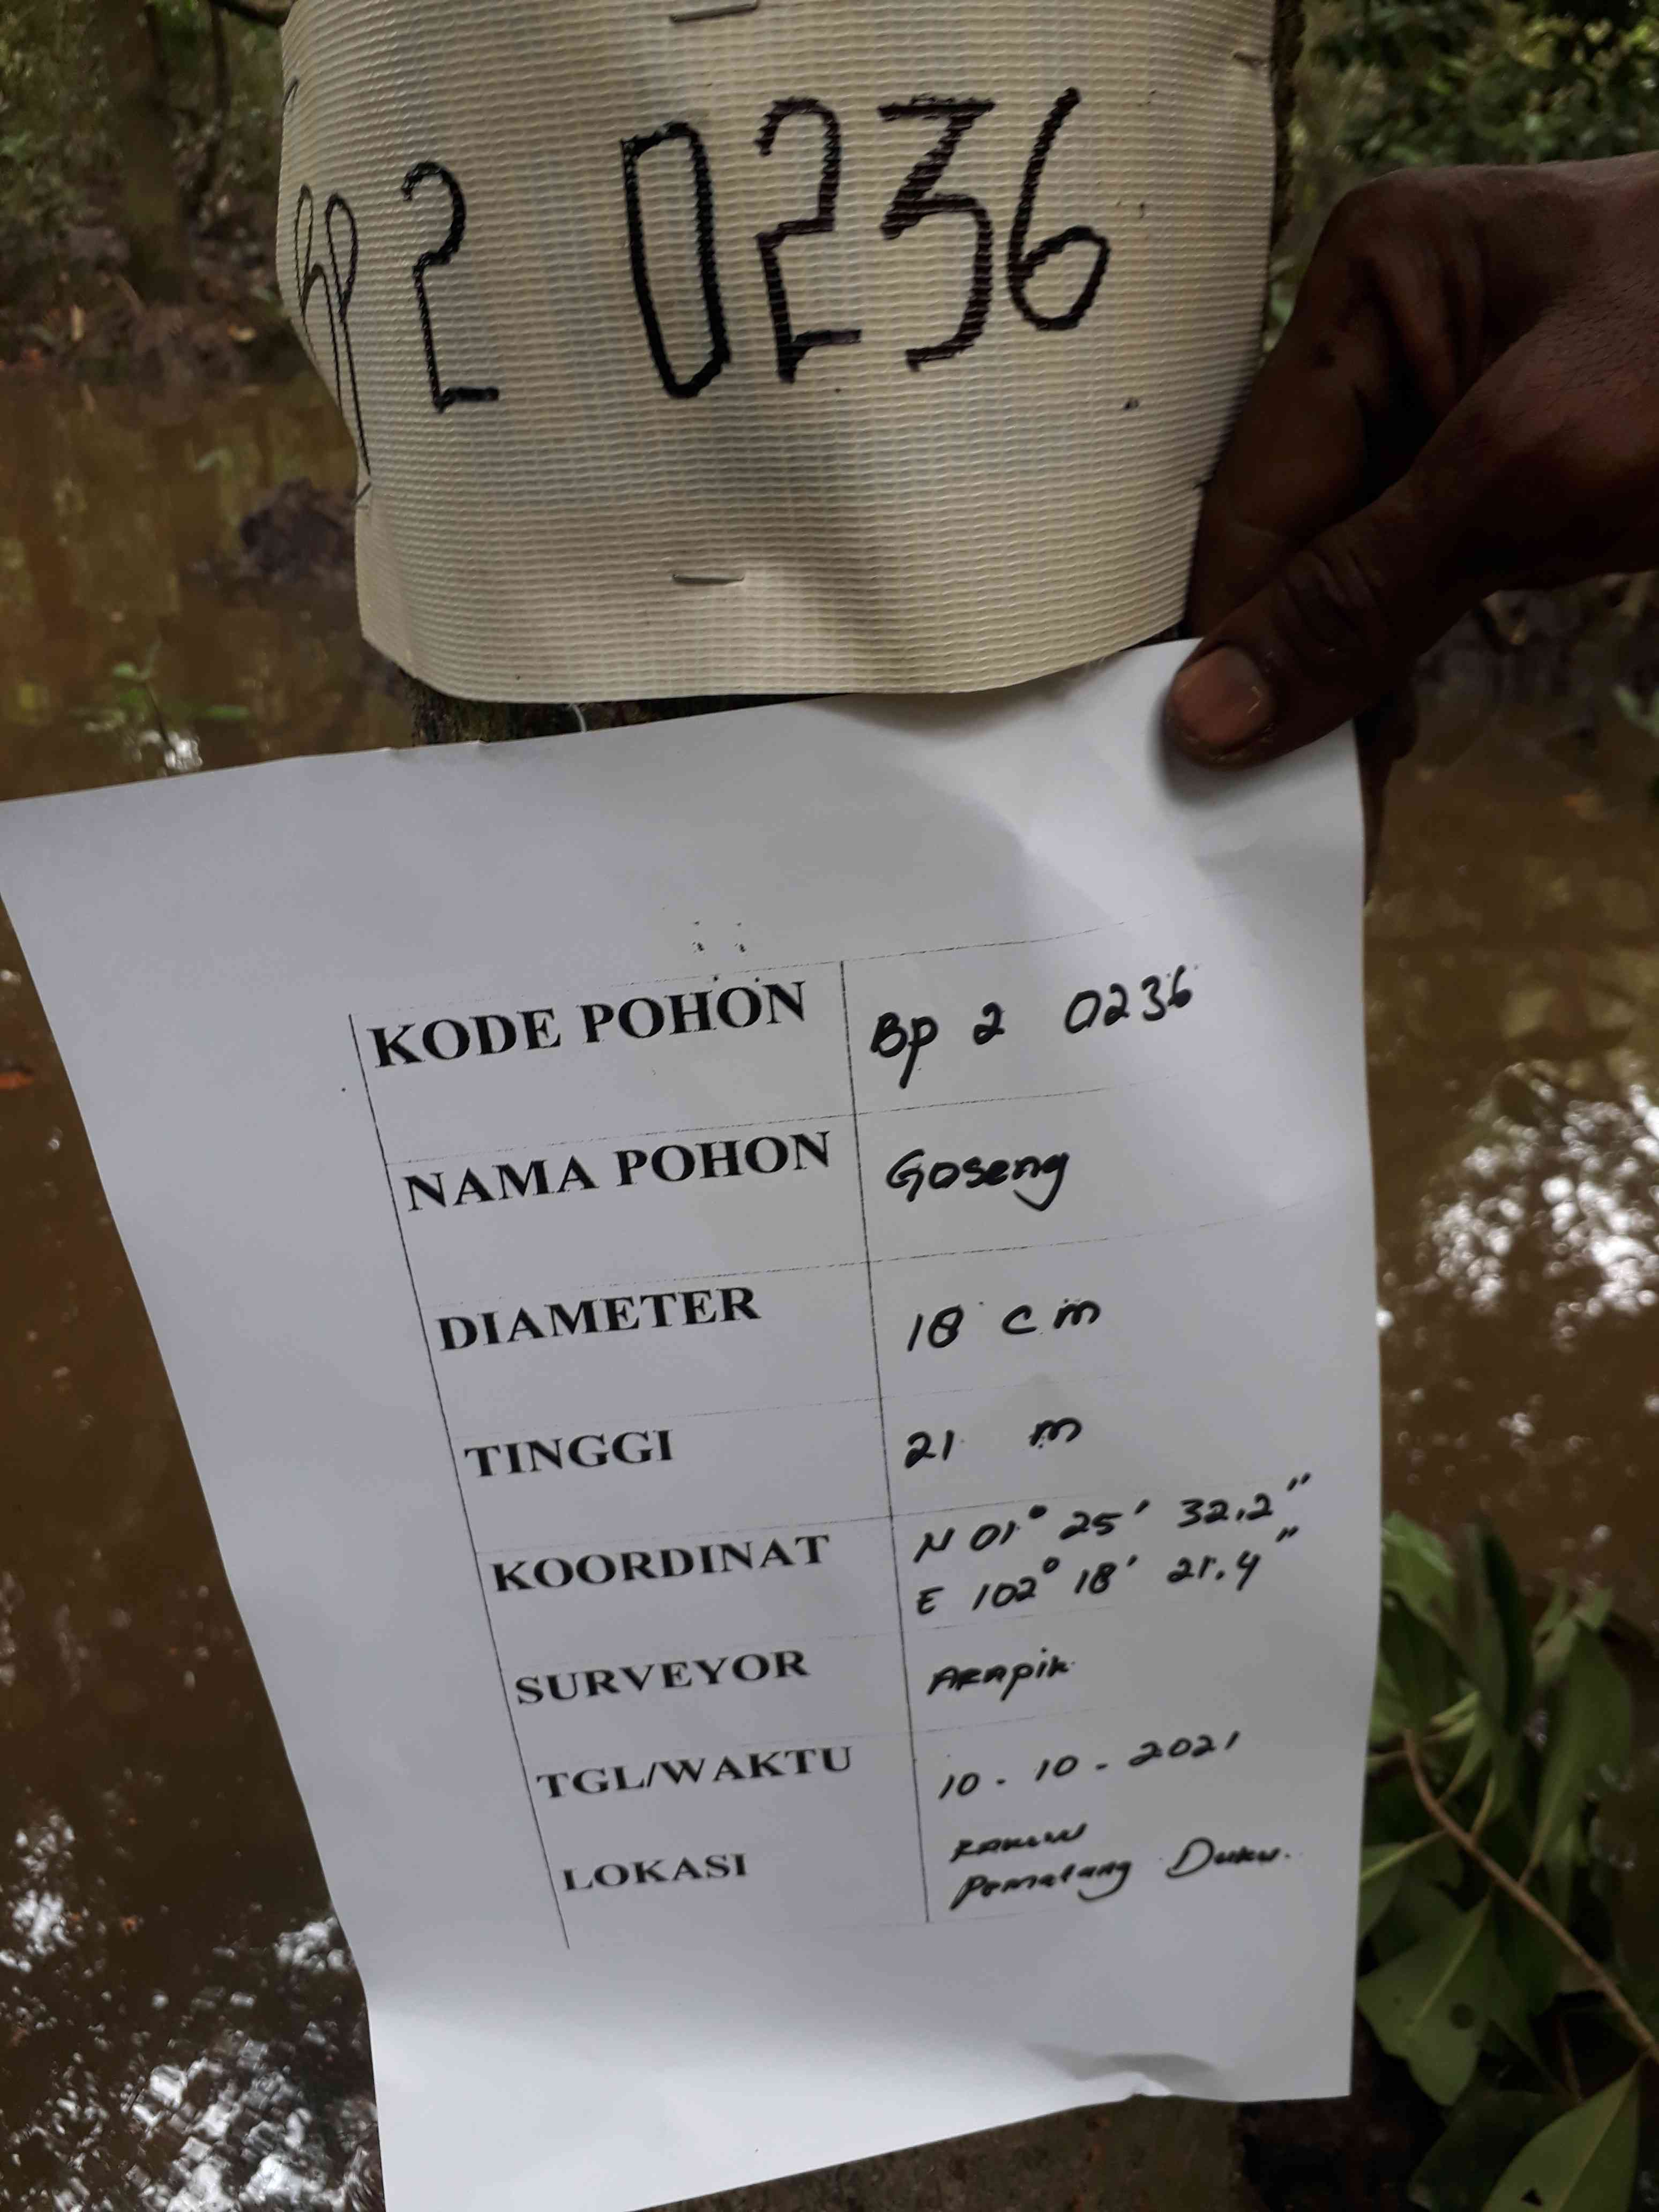 BP 2 0236
KODE POHON Bp 2 0236
NAMA POHON Goseng
DIAMETER 18 cm
TINGGI 21 m
KOORDINAT N 01° 25' 32.2"
E 102° 18' 21.4"
SURVEYOR ARApik
TGL/WAKTU 10 - 10 - 2021
LOKASI
Pematang Duku.